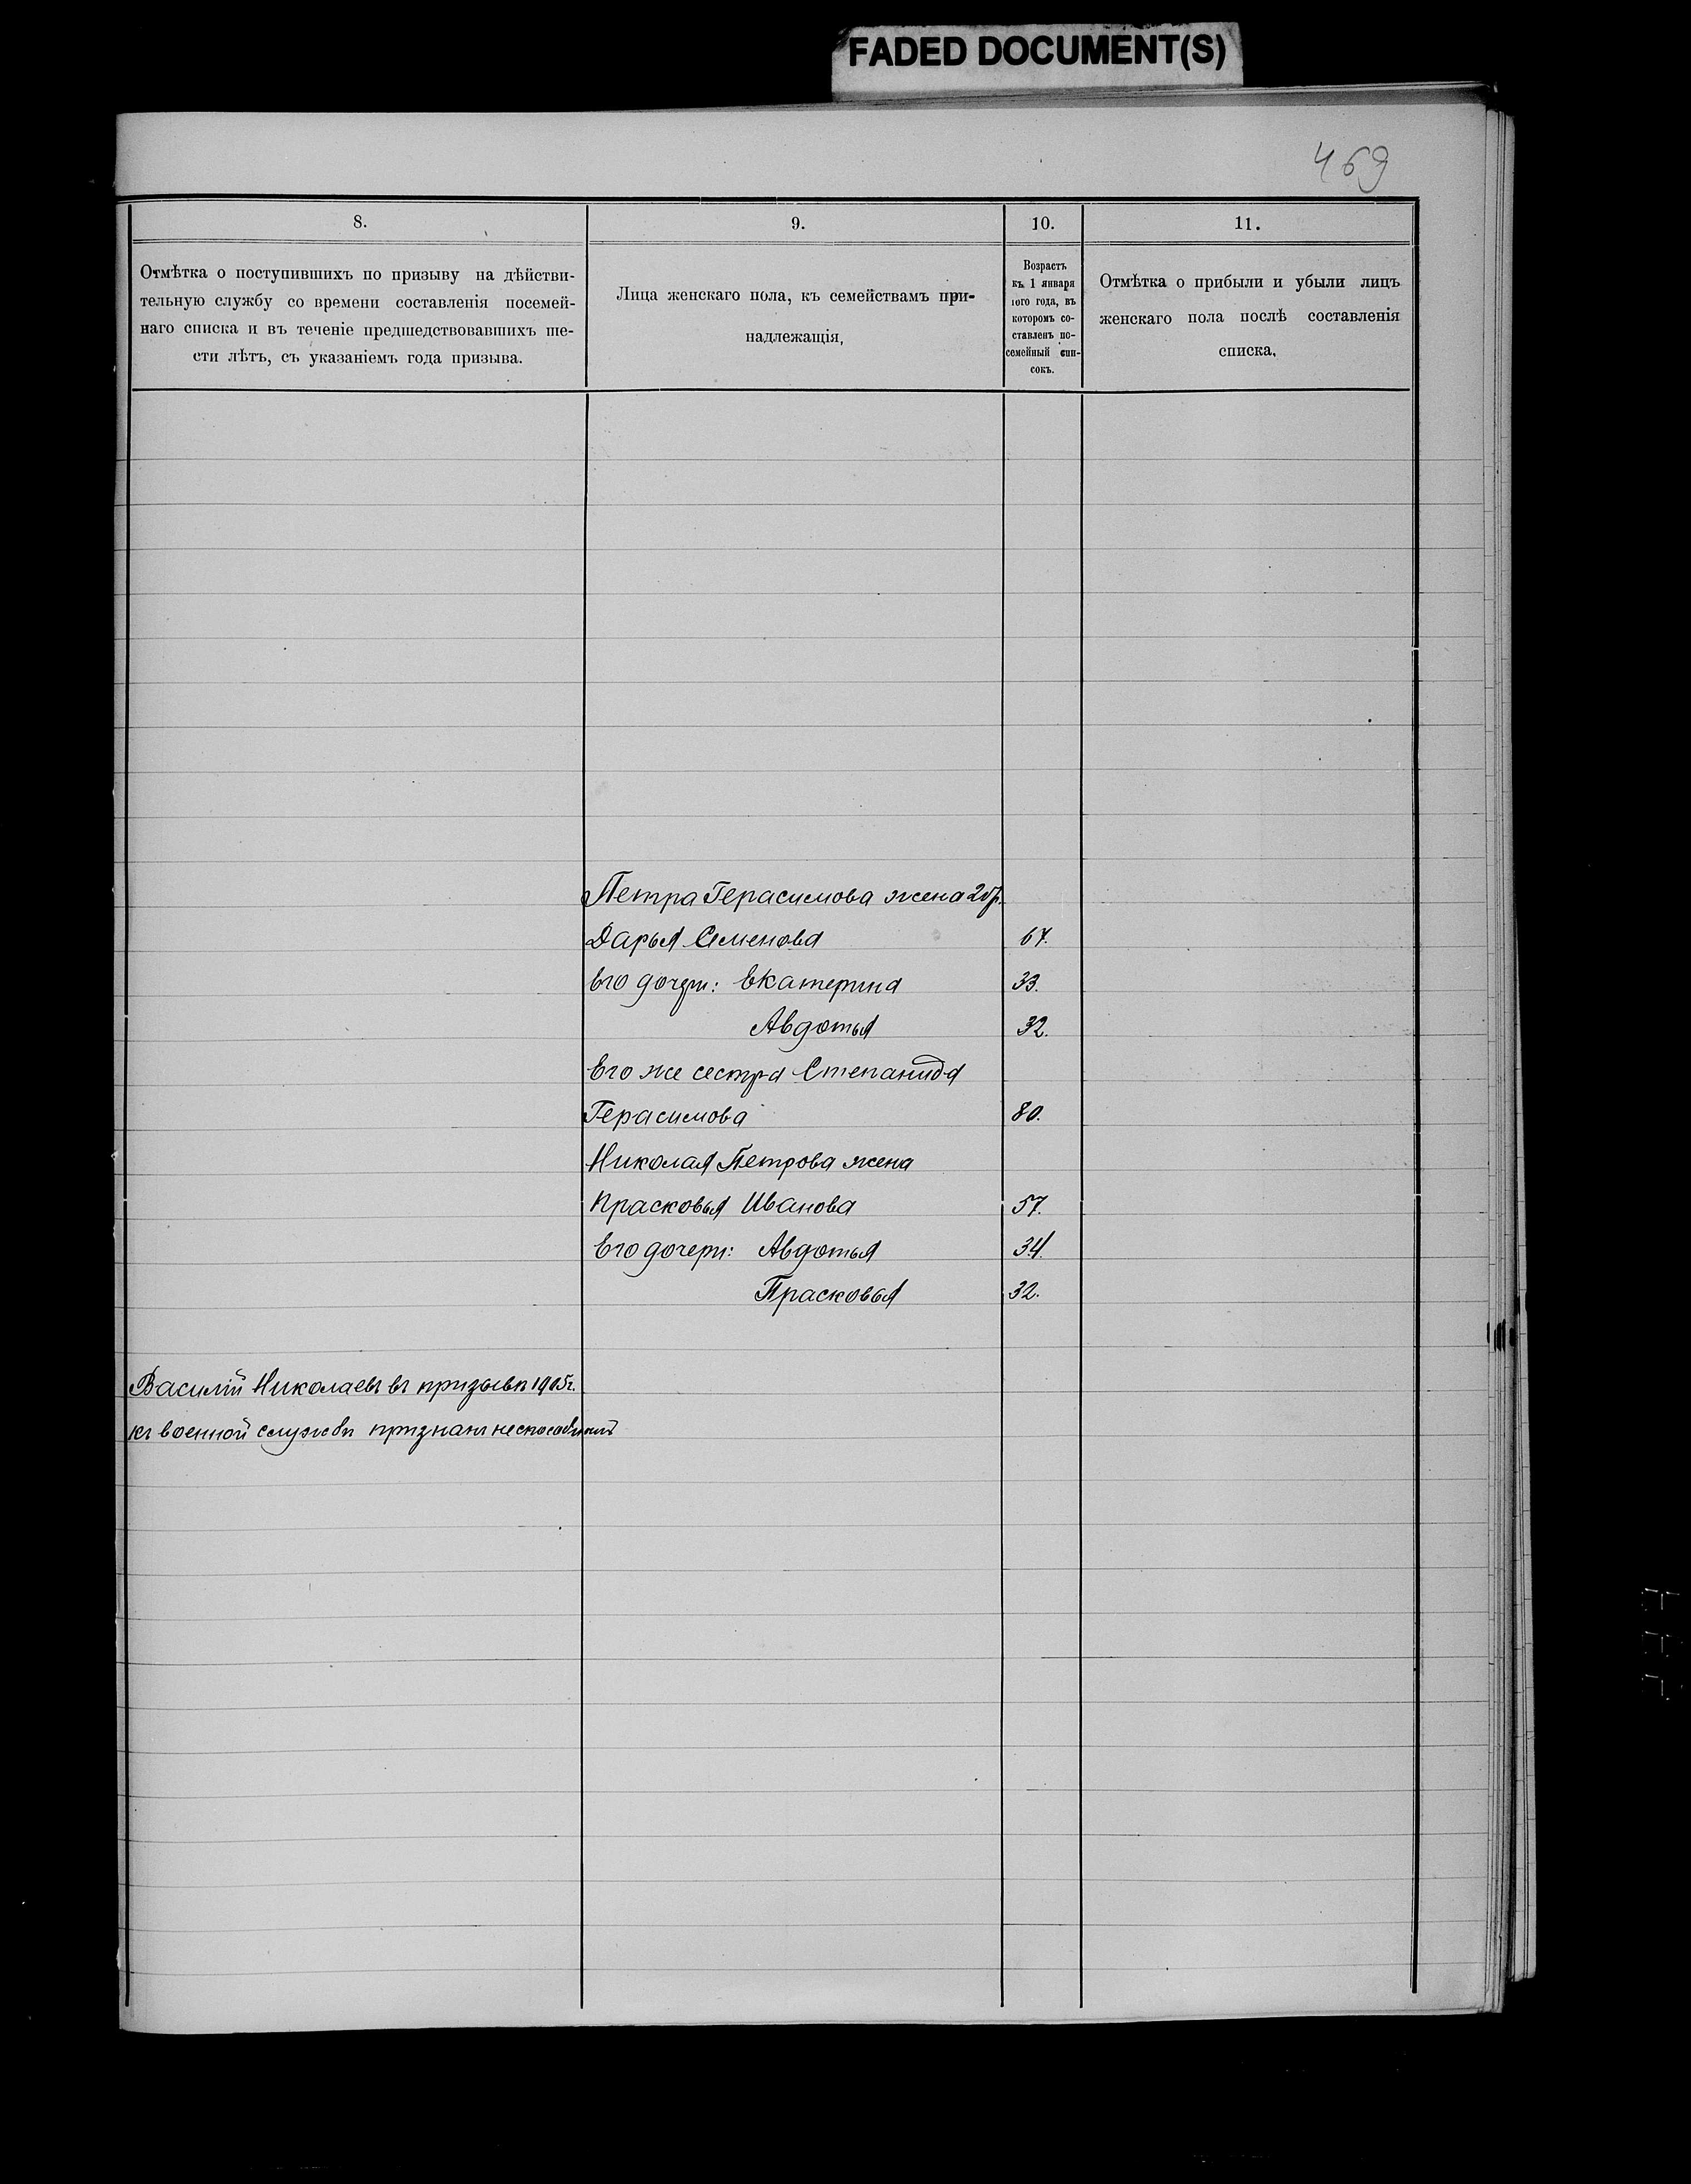 FADED DOCUMENT(S)
469
8.
9.
10.
11.
Отмѣтка о поступившихъ по призыву на дѣйстви-
тельную службу со времени составленія посемей-
наго списка и въ теченіе предшедствовавшихъ ше-
сти лѣтъ, съ указаніемъ года призыва.
Лица женскаго пола, къ семействамъ при-
надлежащія,
Возрастъ
къ 1 января
того года, въ
которомъ со-
ставленъ по-
семейный спи-
сокъ.
Отмѣтка о прибыли и убыли лицъ
женскаго пола послѣ составленія
списка.
Петра Герасимова жена 2 бр.
Дарья Семенова 67.
Его дочери: Екатерина 33.
Авдотья 32.
Его же сестра Степанида
Герасимова 80.
Николая Петрова жена
Прасковья Иванова 57.
Его дочери: Авдотья 34.
Прасковья 32.
Василій Николаевъ въ призывъ 1905 г.
къ военной службѣ признанъ неспособнымъ